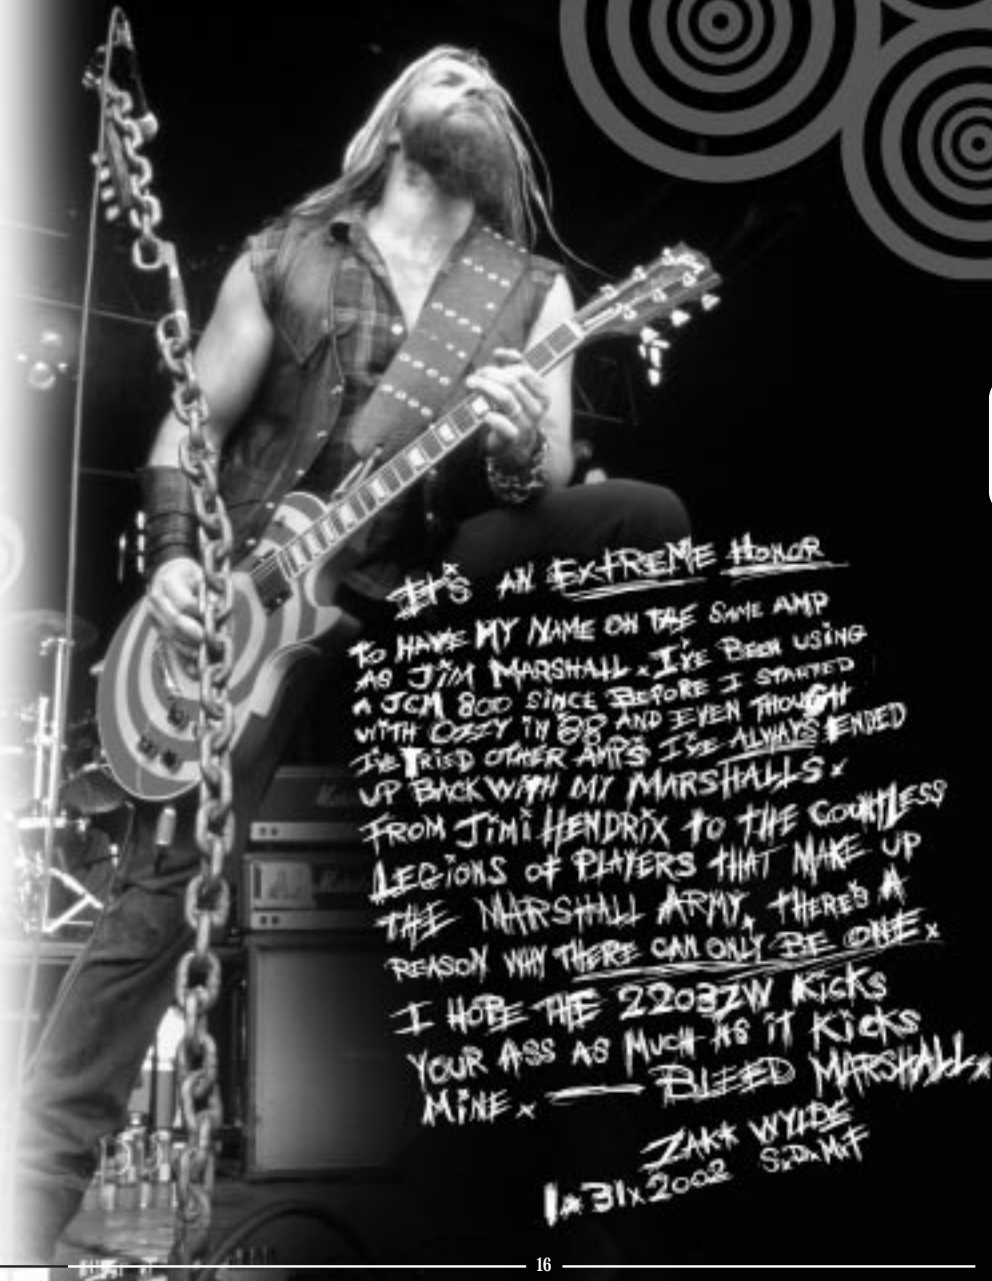 IT'S AN EXTREME HONOR
TO HAVE MY NAME ON THE SAME AMP
AS JIM MARSHALL. I'VE BEEN USING
A JCM 800 SINCE BEFORE I STARTED
WITH OZZY IN '88 AND EVEN THOUGH
I'VE TRIED OTHER AMPS I'VE ALWAYS ENDED
UP BACK WITH MY MARSHALLS.
FROM JIMI HENDRIX TO THE COUNTLESS
LEGIONS OF PLAYERS THAT MAKE UP
THE MARSHALL ARMY, THERE'S A
REASON WHY THERE CAN ONLY BE ONE.
I HOPE THE 2203ZW KICKS
YOUR ASS AS MUCH AS IT KICKS
MINE. — BLEED MARSHALL.
ZAKK WYLDE
S.D.M.F
1.31.2002
16